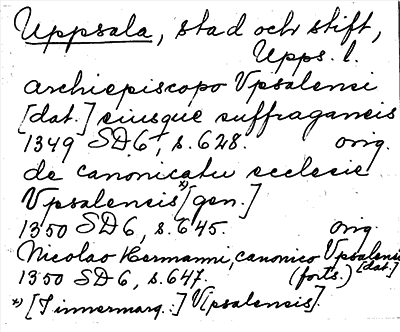 Uppsala, stad och stift,
Upps. l.
archiepiscopo Vpsalensi
[dat.] eiusque suffraganeis
1349 SD 6, s. 628. orig.
de canonicatu ecclesie
Vpsalensis *) [gen.]
1350 SD 6, s. 645. orig.
Nicolao Hermanni, canonico Vpsalensi [dat.]
1350 SD 6, s. 647. (forts.)
*) [I innermarg.:] V[psalensis].